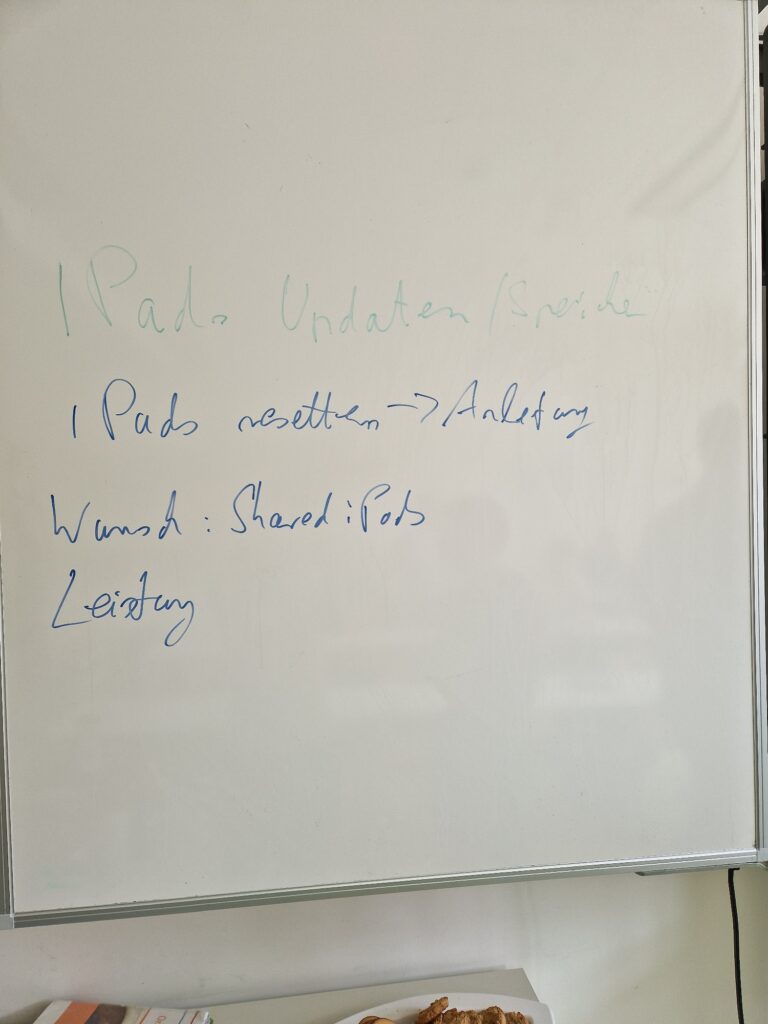 IPads Updaten/Speicher
IPads resetten -> Anleitung
Wunsch: Shared iPads
Leistung